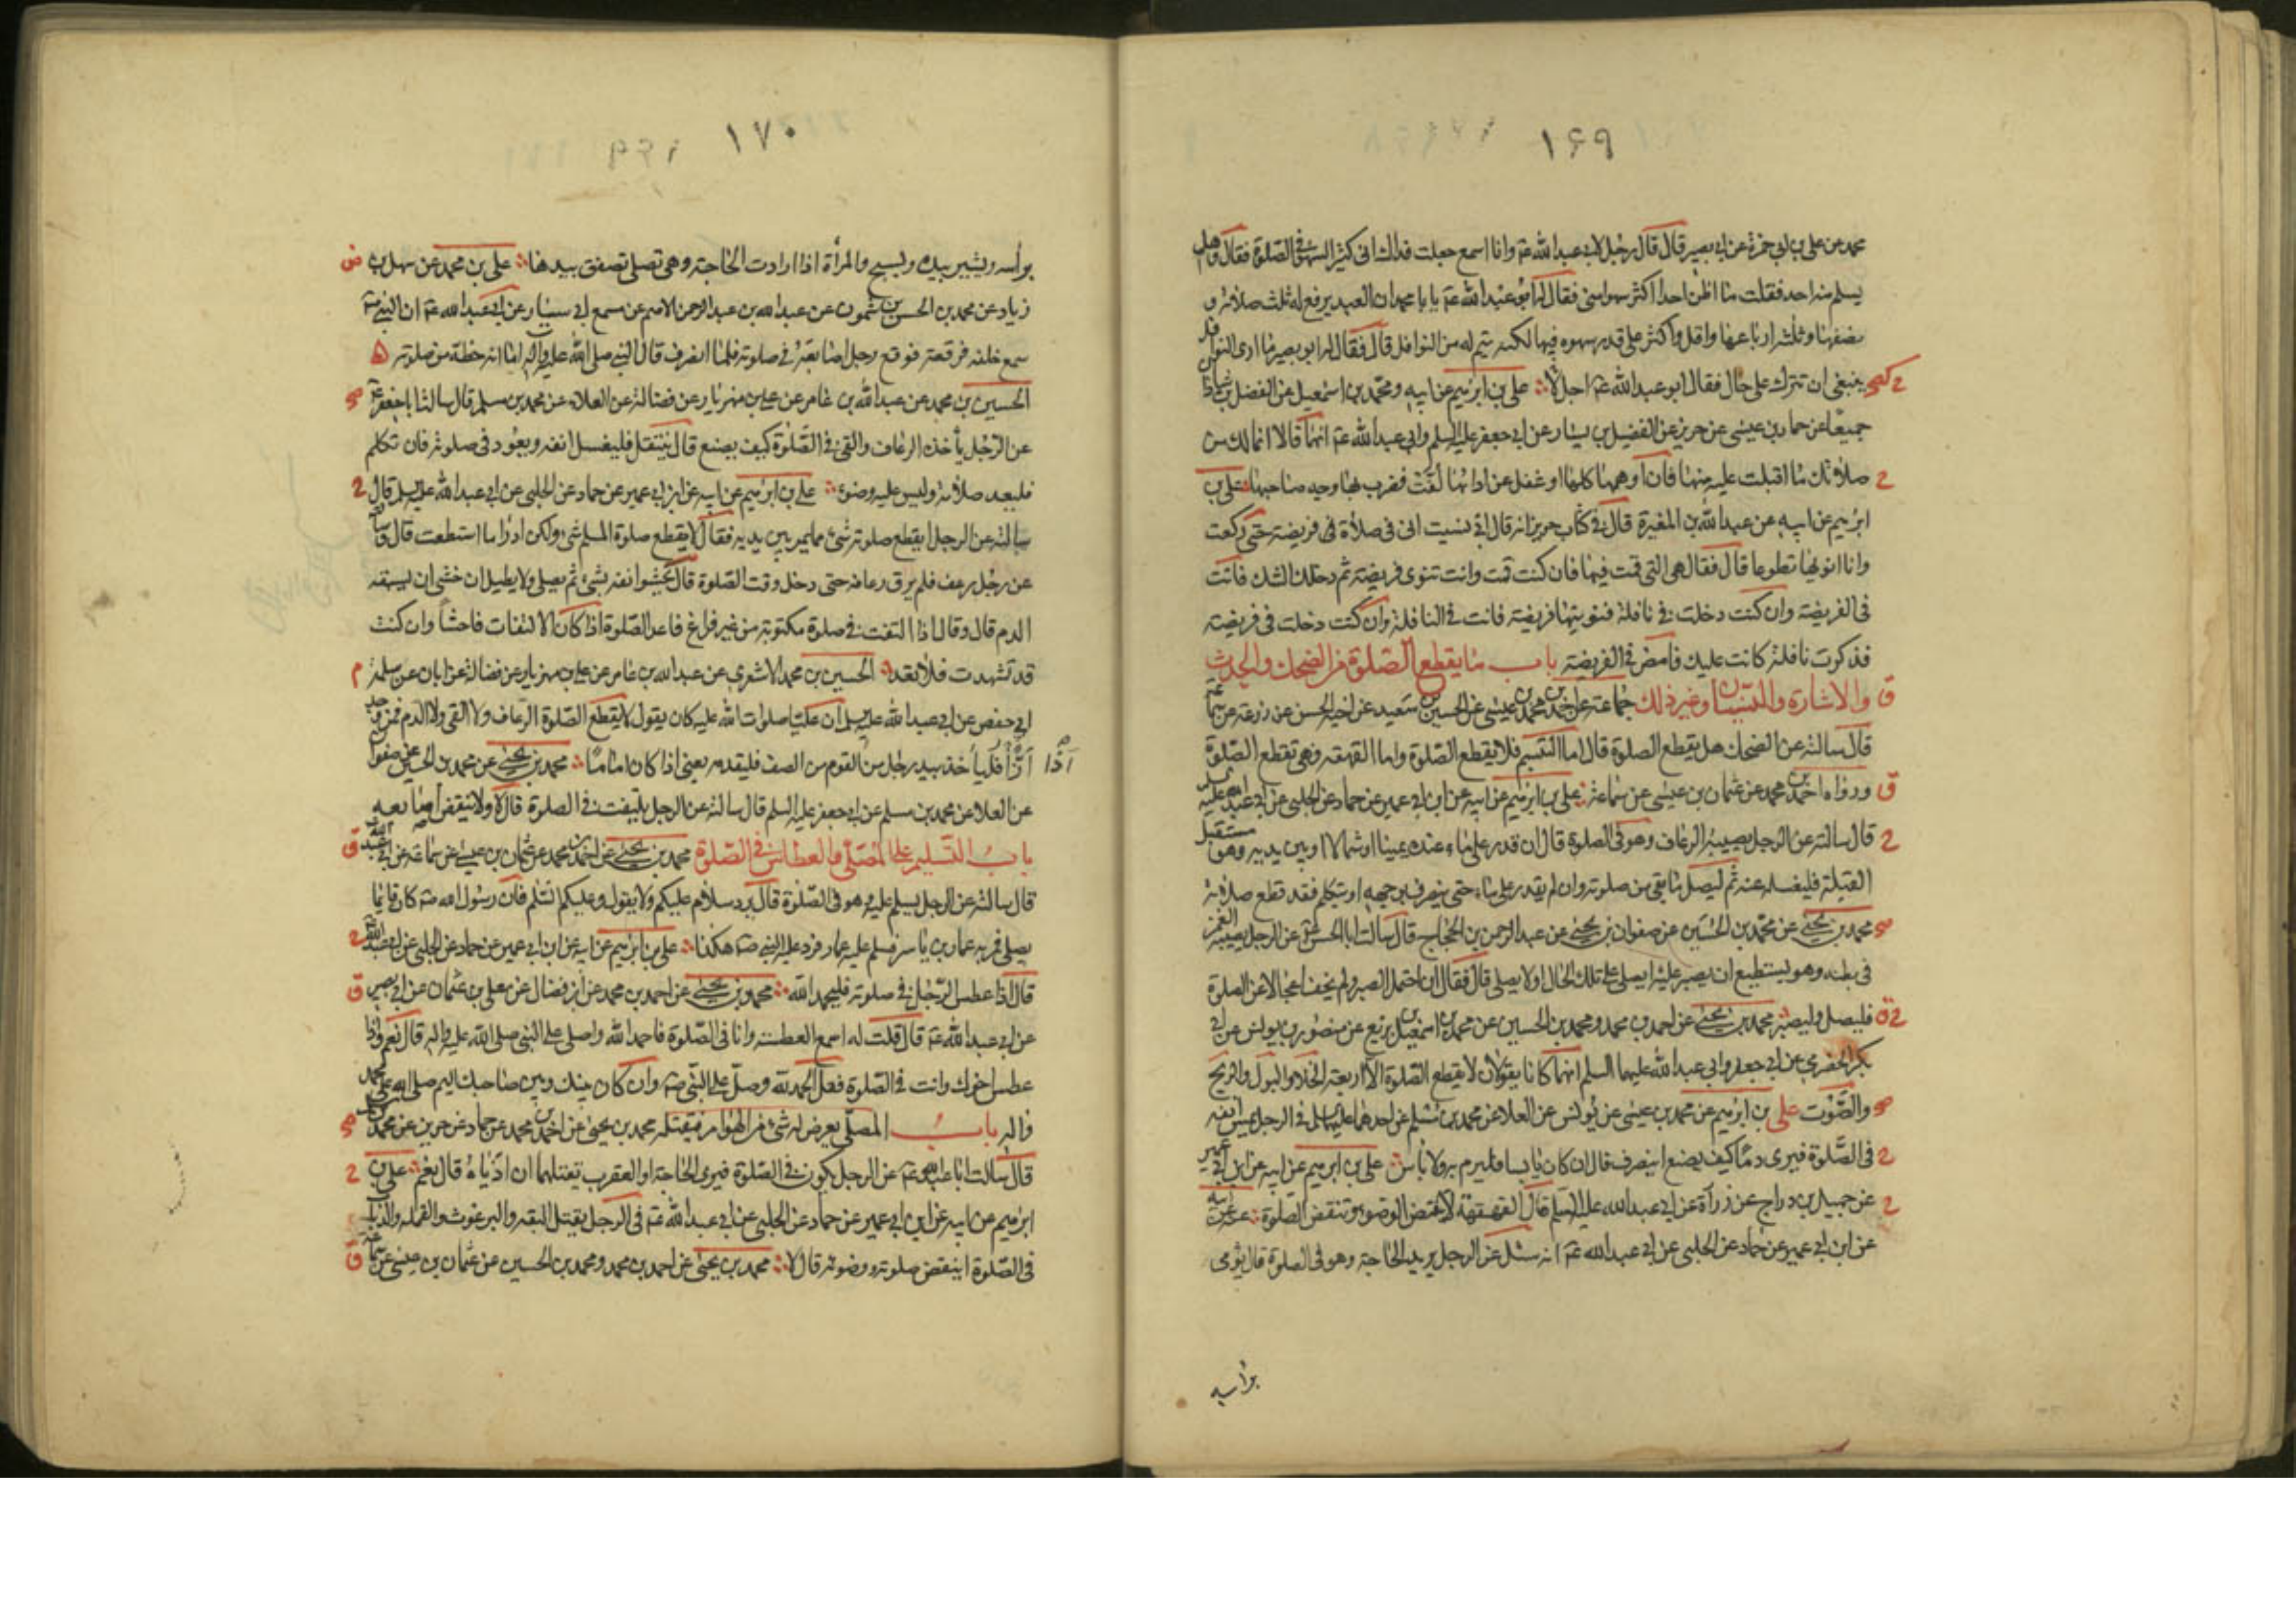 ١٦٩
محمد عن علي بن ابي حمزة عن ابي بصير قال قال رجل لابي عبد الله عم وانا اسمع جعلت فداك اني كثير السهو في الصلوة فقال وهل
يسلم منه احد فقلت ما اظن احدا اكثر سهوا مني فقال له ابو عبد الله عم يا با محمد ان العبد يرفع له ثلث صلاته و
نصفها وثلثة ارباعها واقل واكثر على قدر سهوه فيها لكنه يتم له من النوافل قال فقال له ابو بصير ما ارى النوافل
ينبغي ان تترك على حال فقال ابو عبد الله عم اجل لا علي بن ابرهيم عن ابيه ومحمد بن اسمعيل عن الفضل بن شاذان
جميعا عن حماد بن عيسى عن حريز عن الفضيل بن يسار عن ابي جعفر عليه السلم وابي عبد الله عم انهما قالا انما لك من
صلاتك ما اقبلت عليه منها فان اوهمها كلها او غفل عن ادائها لفت فضرب بها وجه صاحبها علي بن
ابرهيم عن ابيه عن عبد الله بن المغيرة قال في كتاب حريز انه قال اني نسيت اني في صلاة في فريضة حتى ركعت
وانا انويها تطوعا قال فقال هي التي قمت فيها فان كنت قمت وانت تنوى فريضة ثم دخلك الشك فانت
في الفريضة وان كنت دخلت في نافلة فنويتها فريضة فانت في النافلة وان كنت دخلت في فريضة
فذكرت نافلة كانت عليك فامض في الفريضة باب ما يقطع الصلوة من الضحك والحدث
والاشارة والنسيان وغير ذلك جماعة عن احمد بن محمد بن عيسى عن الحسين بن سعيد عن اخيه الحسن عن زرعة عن سماعة
قال سالته عن الضحك هل يقطع الصلوة قال اما التبسم فلا يقطع الصلوة واما القهقهه فهي تقطع الصلوة
ورواه احمد بن محمد عن عثمان بن عيسى عن سماعة علي بن ابرهيم عن ابيه عن ابن ابي عمير عن حماد عن الحلبي عن ابي عبد الله عليه
قال سالته عن الرجل يصيبه الرعاف وهو في الصلوة قال ان قدر على ماء عنده يمينا او شمالا او بين يديه وهو مستقبل
القبلة فليغسله عنه ثم ليصل ما بقي من صلوته وان لم يقدر على ماء حتى ينصرف بوجهه او يتكلم فقد قطع صلاته
محمد بن يحيى عن محمد بن الحسين عن صفوان بن يحيى عن عبد الرحمن بن الحجاج قال سالت ابا الحسن عم عن الرجل يصيبه الغمز
في بطنه وهو يستطيع ان يصبر عليه ايصلي على تلك الحال او لا يصلي قال فقال ان احتمل الصبر ولم يخف اعجالا عن الصلوة
فليصل وليصبر محمد بن يحيى عن احمد بن محمد ومحمد بن الحسين عن محمد بن اسمعيل بن بزيع عن منصور بن يونس عن ابي
بكر الحضرمي عن ابي جعفر وابي عبد الله عليهما السلم انهما كانا يقولان لا يقطع الصلوة الا اربعة الخلاء والبول والريح
والصوت علي بن ابرهيم عن محمد بن عيسى عن يونس عن العلا عن محمد بن مسلم عن احدهما عليهما السلم في الرجل يمس انفه
في الصلوة فيرى دما كيف يصنع اينصرف قال ان كان يابسا فليرم به ولا باس علي بن ابرهيم عن ابيه عن ابن ابي عمير
عن جميل بن دراج عن زرارة عن ابي عبد الله عليه السلم قال القهقهة لا تنقض الوضوء وتنقض الصلوة عنه عن ابيه
عن ابن ابي عمير عن حماد عن الحلبي عن ابي عبد الله عم انه سئل عن الرجل يريد الحاجة وهو في الصلوة قال يومي
براسه
١٧٠
براسه ويشير بيده ويسبح والمرأة اذا ارادت الحاجة وهي تصلي تصفق بيدها علي بن محمد عن سهل بن
زياد عن محمد بن الحسن بن شمون عن عبد الله بن عبد الرحمن الاصم عن مسمع ابي سيار عن ابي عبد الله عم ان النبي ص
سمع خلفه فرقعة فرقع رجل اصابعه في صلوته فلما انصرف قال النبي صلى الله عليه وآله اما انه حظه من صلوته
الحسين بن محمد عن عبد الله بن عامر عن علي بن مهزيار عن فضالة عن العلاء عن محمد بن مسلم قال سالت ابا جعفر عم
عن الرجل يأخذه الرعاف والقئ في الصلوة كيف يصنع قال ينفتل فليغسل انفه ويعود في صلوته فان تكلم
فليعد صلاته وليس عليه وضوء علي بن ابرهيم عن ابيه عن ابن ابي عمير عن حماد عن الحلبي عن ابي عبد الله عليه السلم قال
سالته عن الرجل ايقطع صلوته شئ مما يمر بين يديه فقال لا يقطع صلوة المسلم شئ ولكن ادرأ ما استطعت قال وسألته
عن رجل رعف فلم يرق رعافه حتى دخل وقت الصلوة قال يحشو انفه بشئ ثم يصلي ولا يطيل ان خشي ان يسبقه
الدم قال وقال اذا التفت في صلوة مكتوبة من غير فراغ فاعد الصلوة اذا كان الالتفات فاحشا وان كنت
قد تشهدت فلا تعد الحسين بن محمد الاشعري عن عبد الله بن عامر عن علي بن مهزيار عن فضالة عن ابان عن سلمة
ابي حفص عن ابي عبد الله عليه السلم ان عليا صلوات الله عليه كان يقول لا يقطع الصلوة الرعاف ولا القئ ولا الدم فمن وجد
ازا فليأخذ بيد رجل من القوم من الصف فليقدمه يعني اذا كان اماما محمد بن يحيى عن محمد بن الحسين عن صفوان
عن العلا عن محمد بن مسلم عن ابي جعفر عليه السلم قال سالته عن الرجل يلتفت في الصلوة قال لا ولا ينقض اصابعه
باب التسليم على المصلي والعطاس في الصلوة محمد بن يحيى عن احمد بن محمد عن عثمان بن عيسى عن سماعة عن ابي عبد الله
قال سالته عن الرجل يسلم عليه وهو في الصلوة قال يرد سلام عليكم ولا يقول وعليكم السلم فان رسول الله ص كان قائما
يصلي فمر به عمار بن ياسر فسلم عليه عمار فرد عليه النبي ص هكذا علي بن ابرهيم عن ابيه عن ابن ابي عمير عن حماد عن الحلبي عن ابي عبد الله
قال اذا عطس الرجل في صلوته فليحمد الله محمد بن يحيى عن احمد بن محمد عن ابن فضال عن معلى بن عثمان عن ابي بصير
عن ابي عبد الله عم قال قلت له اسمع العطسة وانا في الصلوة فاحمد الله واصلي على النبي صلى الله عليه واله قال نعم واذا
عطس اخوك وانت في الصلوة فقل الحمد لله وصل على النبي ص وان كان بينك وبين صاحبك اليم صلى الله على محمد
واله باب المصلي يعرض له شئ من الهوام فيقتله محمد بن يحيى عن احمد بن محمد عن حماد عن حريز عن محمد
قال سالت ابا عبد الله عم عن الرجل يكون في الصلوة فيرى الحية او العقرب يقتلهما ان اذياه قال نعم علي بن
ابرهيم عن ابيه عن ابن ابي عمير عن حماد عن الحلبي عن ابي عبد الله عم في الرجل يقتل البقه والبرغوث والقمله والذباب
في الصلوة اينقض صلوته ووضوئه قال لا محمد بن يحيى عن احمد بن محمد ومحمد بن الحسين عن عثمان بن عيسى عن سماعة